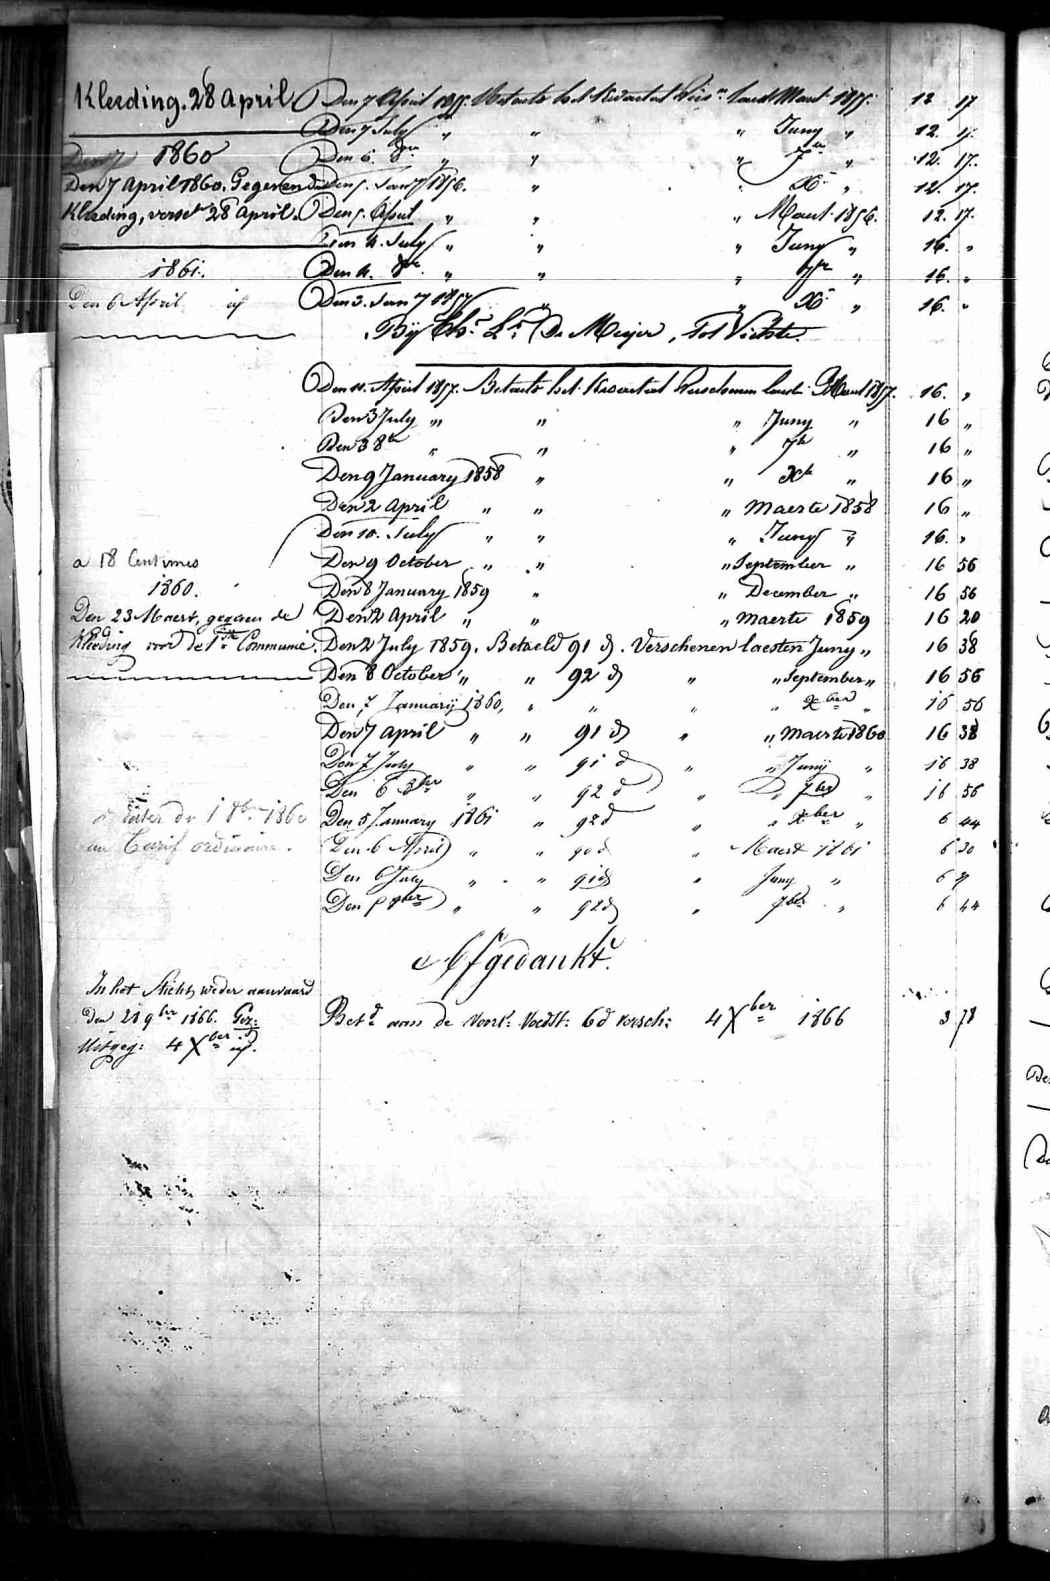 Kleeding. 28 April
1860
Den 7 April 1860. Gegeven de
Kleeding, verset 28 April.
1861.
Den 6 April id
Den 7 April 1855. Betaelt het Kwartaal laest Maert 1855. 12 17
Den 7 July " " " Juny " 12. 17.
Den 6. 8bre " " " 7bre " 12. 17.
Den 5. Jany 1856. " " Xr " 12. 17.
Den 5. April " " " Maert 1856. 12. 17.
Den 4. July " " " Juny " 16. "
Den 4. 8bre " " " 7bre " 16. "
Den 3. Jany 1857 " " Xr " 16. "
By De Meijer, Tot Vichte.
Den 11. April 1857. Betaelt het Kwartaal Verschenen laest Maert 1857. 16. "
Den 3 July " " " Juny " 16 "
Den 3 8bre " " " 7bre " 16 "
Den 9 January 1858 " " Xbre " 16 "
Den 2 April " " " Maerte 1858 16 "
Den 10. July " " " Juny " 16. "
Den 9 October " " " September " 16 56
Den 8 January 1859 " " December " 16 56
Den 2 April " " " maerte 1859 16 20
Den 2 July 1859. Betaeld 91 d. Verschenen laesten Juny " 16 38
Den 8 October " " 92 d " " September " 16 56
Den 7 January 1860, " " " " Xber " 16 56
Den 7 April " " 91 d " " maerte 1860 16 38
Den 7 July " " 91 d " " Juny " 16 38
Den 6 8ber " " 92 d " " 7ber " 16 56
Den 5 January 1861 " 92 d " " Xber " 6 44
Den 6 April " " 90 d " Maert 1861 6 30
Den 6 July " " 91 d " Juny " 6 37
Den 5 8ber " " 92 d " 7ber " 6 44
a 18 Centimes
1860.
Den 23 Maert, gegeven de
Kleeding voor de 1ste Communie.
dater du 1 8bre 1860
au Tarif ordinaire.
Afgedankt.
In het Sticht weder aanvaard
den 28 9ber 1866.
Uitgeg: 4 Xber id.
Betd aan de voorn. Voedst: 6 d versch: 4 Xber 1866 3 78